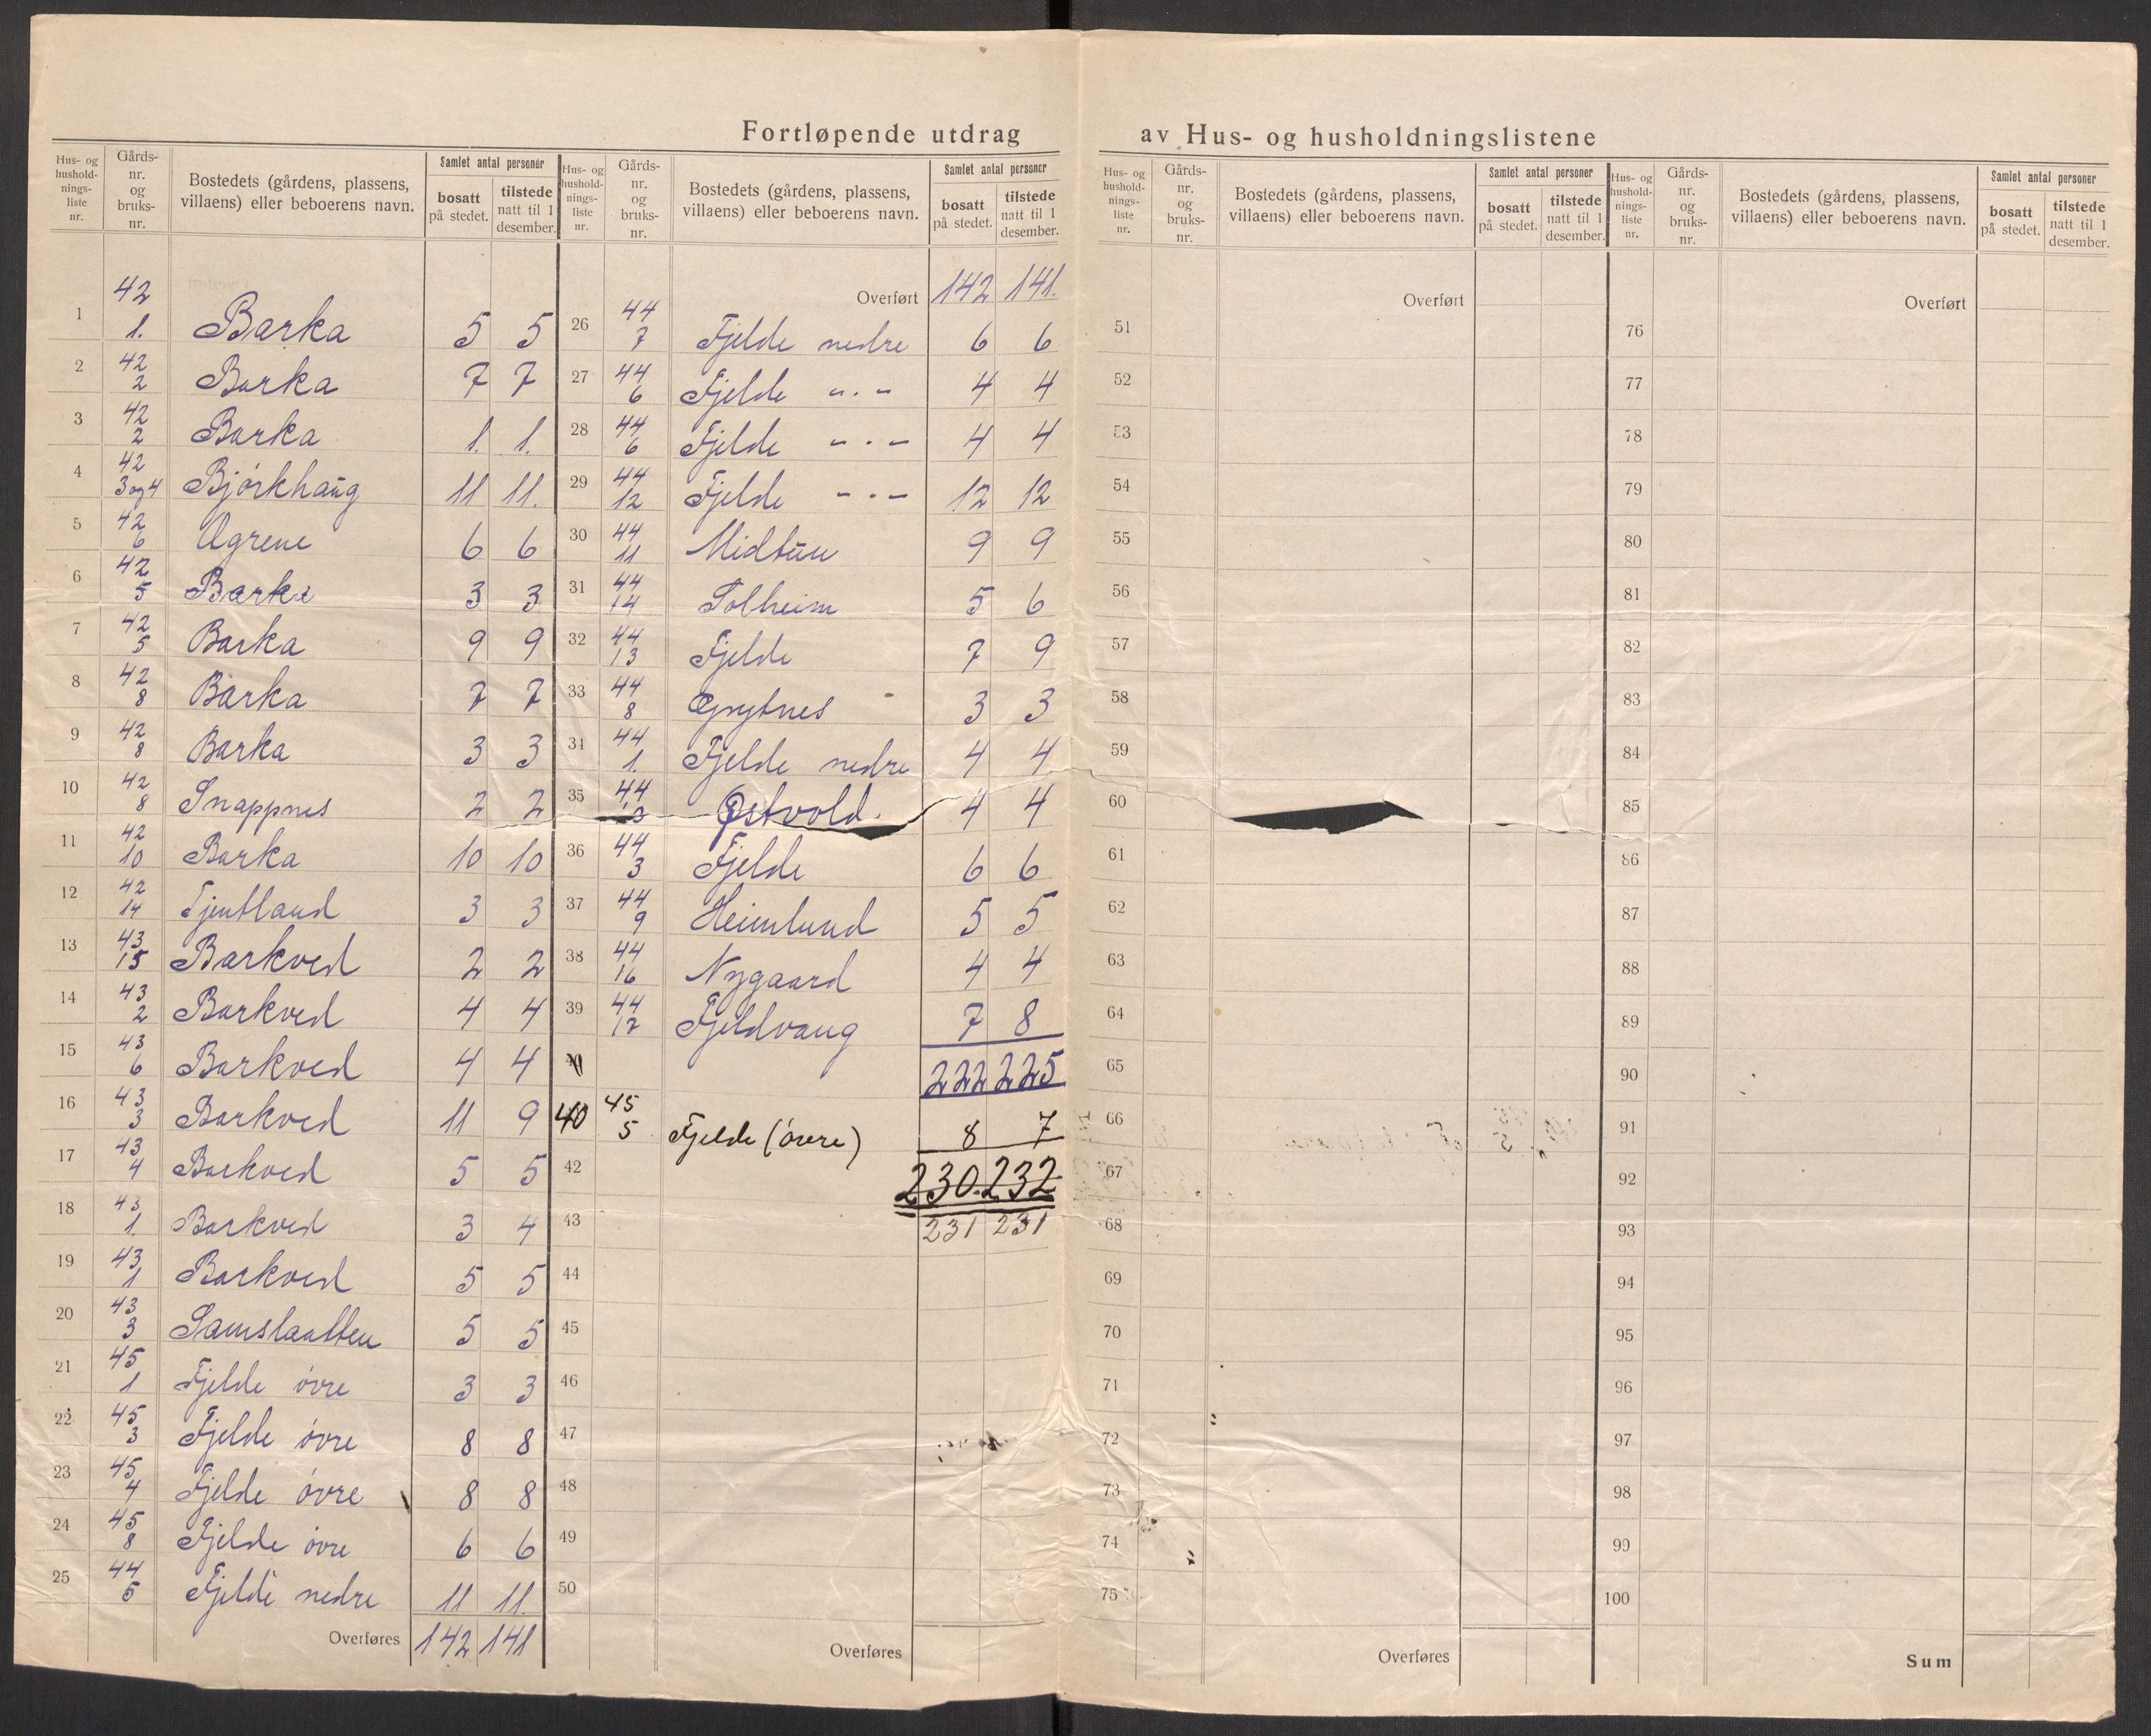 Fortløpende utdrag av Hus- og husholdningslistene
Hus- og hushold-nings-liste nr. Gårds-nr. og bruks-nr. Bostedets (gårdens, plassens, villaens) eller beboerens navn. Samlet antal personer bosatt på stedet. tilstede natt til 1 desember.
1 42 1. Barka 5 5
2 42 2 Barka 7 7
3 42 2 Barka 1. 1.
4 42 3 og 4 Bjørkhaug 11 11.
5 42 6 Agrene 6 6
6 42 5 Barka 3 3
7 42 5 Barka 9 9
8 42 8 Barka 7 7
9 42 8 Barka 3 3
10 42 8 Snappnes 2 2
11 42 10 Barka 10 10
12 42 14 Tjentland 3 3
13 43 15 Barkved 2 2
14 43 2 Barkved 4 4
15 43 6 Barkved 4 4
16 43 3 Barkved 11 9
17 43 4 Barkved 5 5
18 43 1. Barkved 3 4
19 43 1 Barkved 5 5
20 43 3 Samslaatten 5 5
21 45 1 Fjelde øvre 3 3
22 45 3 Fjelde øvre 8 8
23 45 4 Fjelde øvre 8 8
24 45 8 Fjelde øvre 6 6
25 44 5 Fjelde nedre 11 11.
Overføres 142 141
Hus- og hushold-nings-liste nr. Gårds-nr. og bruks-nr. Bostedets (gårdens, plassens, villaens) eller beboerens navn. Samlet antal personer bosatt på stedet. tilstede natt til 1 desember.
Overført 142 141.
26 44 7 Fjelde nedre 6 6
27 44 6 Fjelde -"- 4 4
28 44 6 Fjelde -"- 4 4
29 44 12 Fjelde -"- 12 12
30 44 11 Midtun 9 9
31 44 14 Solheim 5 6
32 44 13 Fjelde 7 9
33 44 8 Grytnes 3 3
34 44 1. Fjelde nedre 4 4
35 44 Østvold. 4 4
36 44 3 Fjelde 6 6
37 44 9 Heimlund 5 5
38 44 16 Nygaard 4 4
39 44 17 Fjeldvang 7 8
222 225
40 45 5 Fjelde (øvre) 8 7
42 230. 232
43 231 231
44
45
46
47
48
49
50
Overføres
Hus- og hushold-nings-liste nr. Gårds-nr. og bruks-nr. Bostedets (gårdens, plassens, villaens) eller beboerens navn. Samlet antal personer bosatt på stedet. tilstede natt til 1 desember.
Overført
51
52
53
54
55
56
57
58
59
60
61
62
63
64
65
66
67
68
69
70
71
72
73
74
75
Overføres
Hus- og hushold-nings-liste nr. Gårds-nr. og bruks-nr. Bostedets (gårdens, plassens, villaens) eller beboerens navn. Samlet antal personer bosatt på stedet. tilstede natt til 1 desember.
Overført
76
77
78
79
80
81
82
83
84
85
86
87
88
89
90
91
92
93
94
95
96
97
98
99
100
Sum